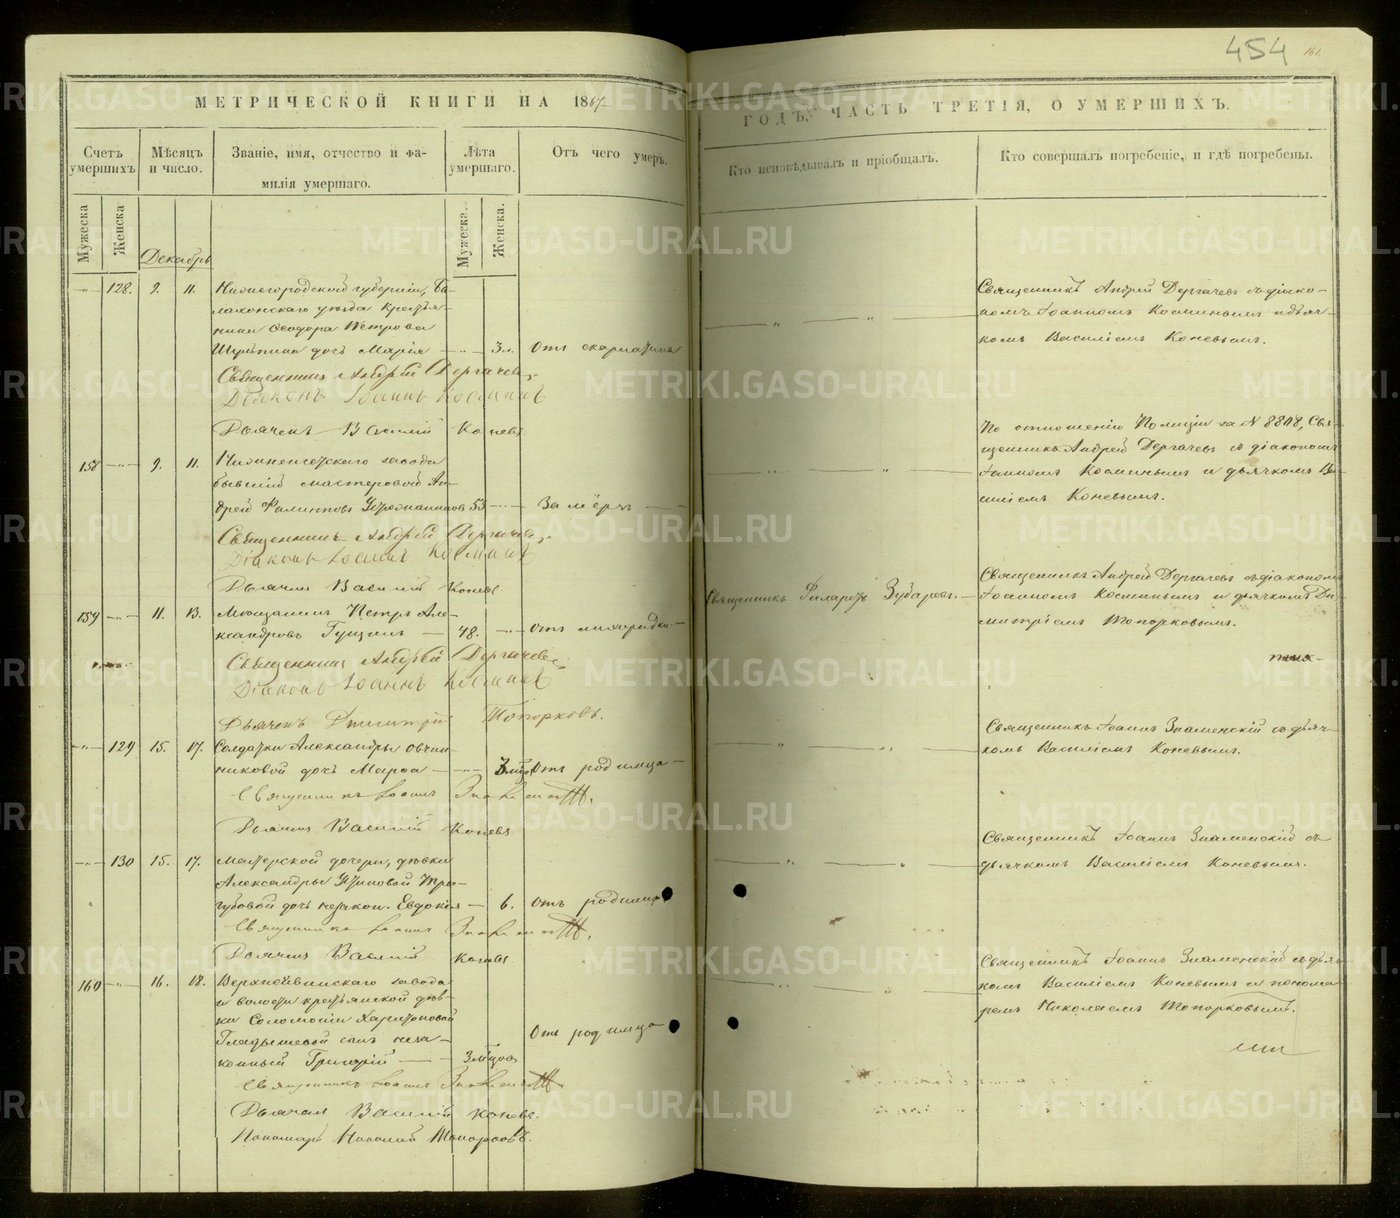 454
МЕТРИЧЕСКОЙ КНИГИ НА 1867
ГОДЪ, ЧАСТЬ ТРЕТІЯ, О УМЕРШИХЪ.
Счетъ умершихъ
Мѣсяцъ и число.
Званіе, имя, отчество и фамилія умершаго.
Лѣта умершаго.
Отъ чего умеръ.
Кто исповѣдывалъ и пріобщалъ.
Кто совершалъ погребеніе, и гдѣ погребены.
Мужеска
Женска
Мужеска.
Женска.
Декабрь
128. 9. 11. Нижегородской губерніи, Ба-
лахонскаго уѣзда крестья-
нина Ѳеодора Петрова
дочь Марія 3 л. Отъ скарлатины
Священникъ Андрей Дергачевъ съ діако-
номъ Іоанномъ Косминымъ и дьяч-
комъ Василіемъ Коневымъ.
Священникъ Андрей Дергачевъ
Діаконъ Іоаннъ Косминъ
Дьячекъ Василій Коневъ
158 9. 11. завода
бывшій мастеровой Ан-
дрей Филипповъ 53 Замёрзъ
По отношенію Полиціи за № Свя-
щенникъ Андрей Дергачевъ съ діакономъ
Іоанномъ Косминымъ и дьячкомъ Ва-
силіемъ Коневымъ.
Священникъ Андрей Дергачевъ
Діаконъ Іоаннъ Косминъ
Дьячекъ Василій Коневъ
159 11. 13. Мѣщанинъ Петръ Але-
ксандровъ Гущинъ 48. Отъ лихорадки
Священникъ Филаретъ Зубаревъ.
Священникъ Андрей Дергачевъ съ діакономъ
Іоанномъ Косминымъ и дьячкомъ Ди-
митріемъ Топорковымъ.
Священникъ Андрей Дергачевъ
Діаконъ Іоаннъ Косминъ
Дьячекъ Димитрій Топорковъ.
129 15. 17. Солдатки Александры Овчин-
никовой дочь Марѳа Отъ родимца
Священникъ Іоаннъ Знаменскій съ дьяч-
комъ Василіемъ Коневымъ.
Священникъ Іоаннъ Знаменскій
Дьячекъ Василій Коневъ
130 15. 17. Мастерской дочери, дѣвки
Александры
дочь незакон. Евдокія 6. Отъ родимца
Священникъ Іоаннъ Знаменскій съ
дьячкомъ Василіемъ Коневымъ.
Священникъ Іоаннъ Знаменскій
Дьячекъ Василій Коневъ
160 16. 18. Верхнейвинскаго завода
и волости крестьянской дѣв-
ки Соломоніи Харитоновой
Гладышевой сынъ неза-
конный Григорій 3 мѣсяцовъ Отъ родимца
Священникъ Іоаннъ Знаменскій съ дья-
комъ Василіемъ Коневымъ и понома-
ремъ Николаемъ Топорковымъ.
Священникъ Іоаннъ Знаменскій
Дьячекъ Василій Коневъ.
Пономарь Николай Топорковъ.
METRIKI.GASO-URAL.RU